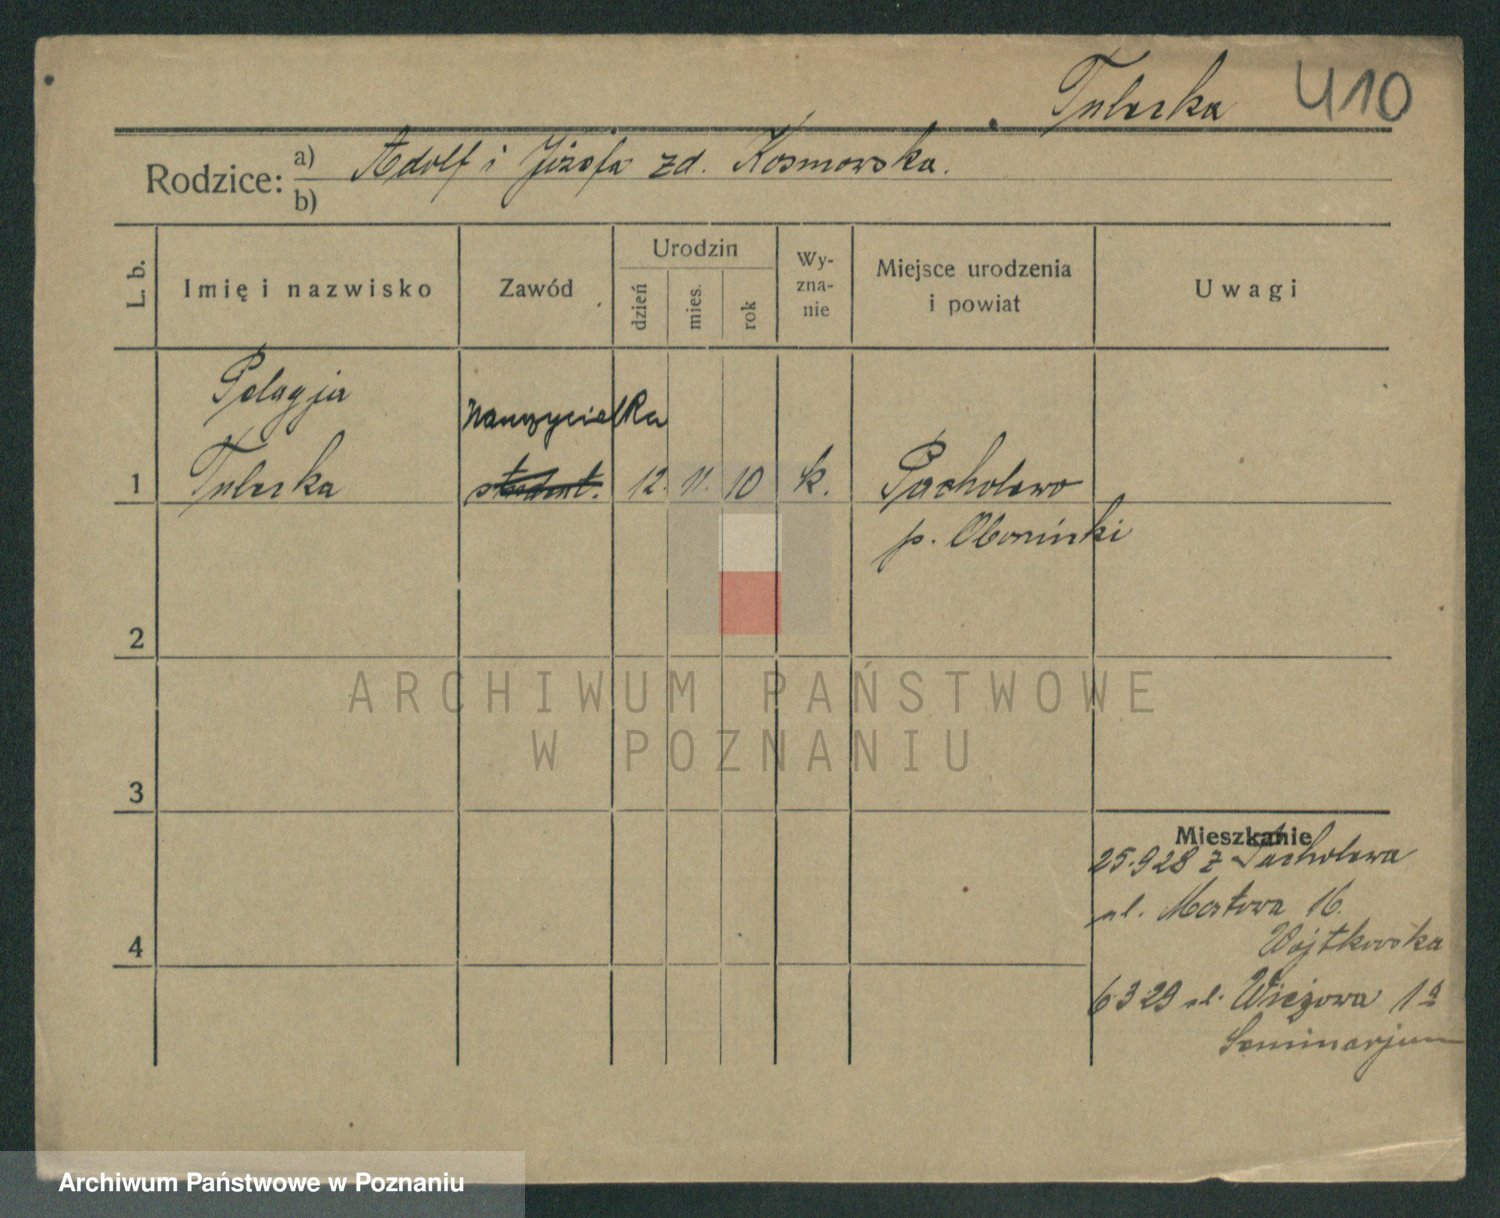 Tulerka 410
Rodzice: a) Adolf i Józefa zd. Kosmowska.
b)
L. b.
Imię i nazwisko
Zawód
Urodzin
dzień
mies.
rok
Wy-
zna-
nie
Miejsce urodzenia
i powiat
Uwagi
Pelagja
Nauczycielka
1 Tulerka student. 12. 11. 10 k. Pacholewo
p. Obornicki
2
ARCHIWUM PAŃSTWOWE
W POZNANIU
3
Mieszkanie
25.928 z Pacholewa
ul. Mostowa 16.
Wojtkowska
4
6 3 29 ul. Wieżowa 1a
Seminarjum
Archiwum Państwowe w Poznaniu